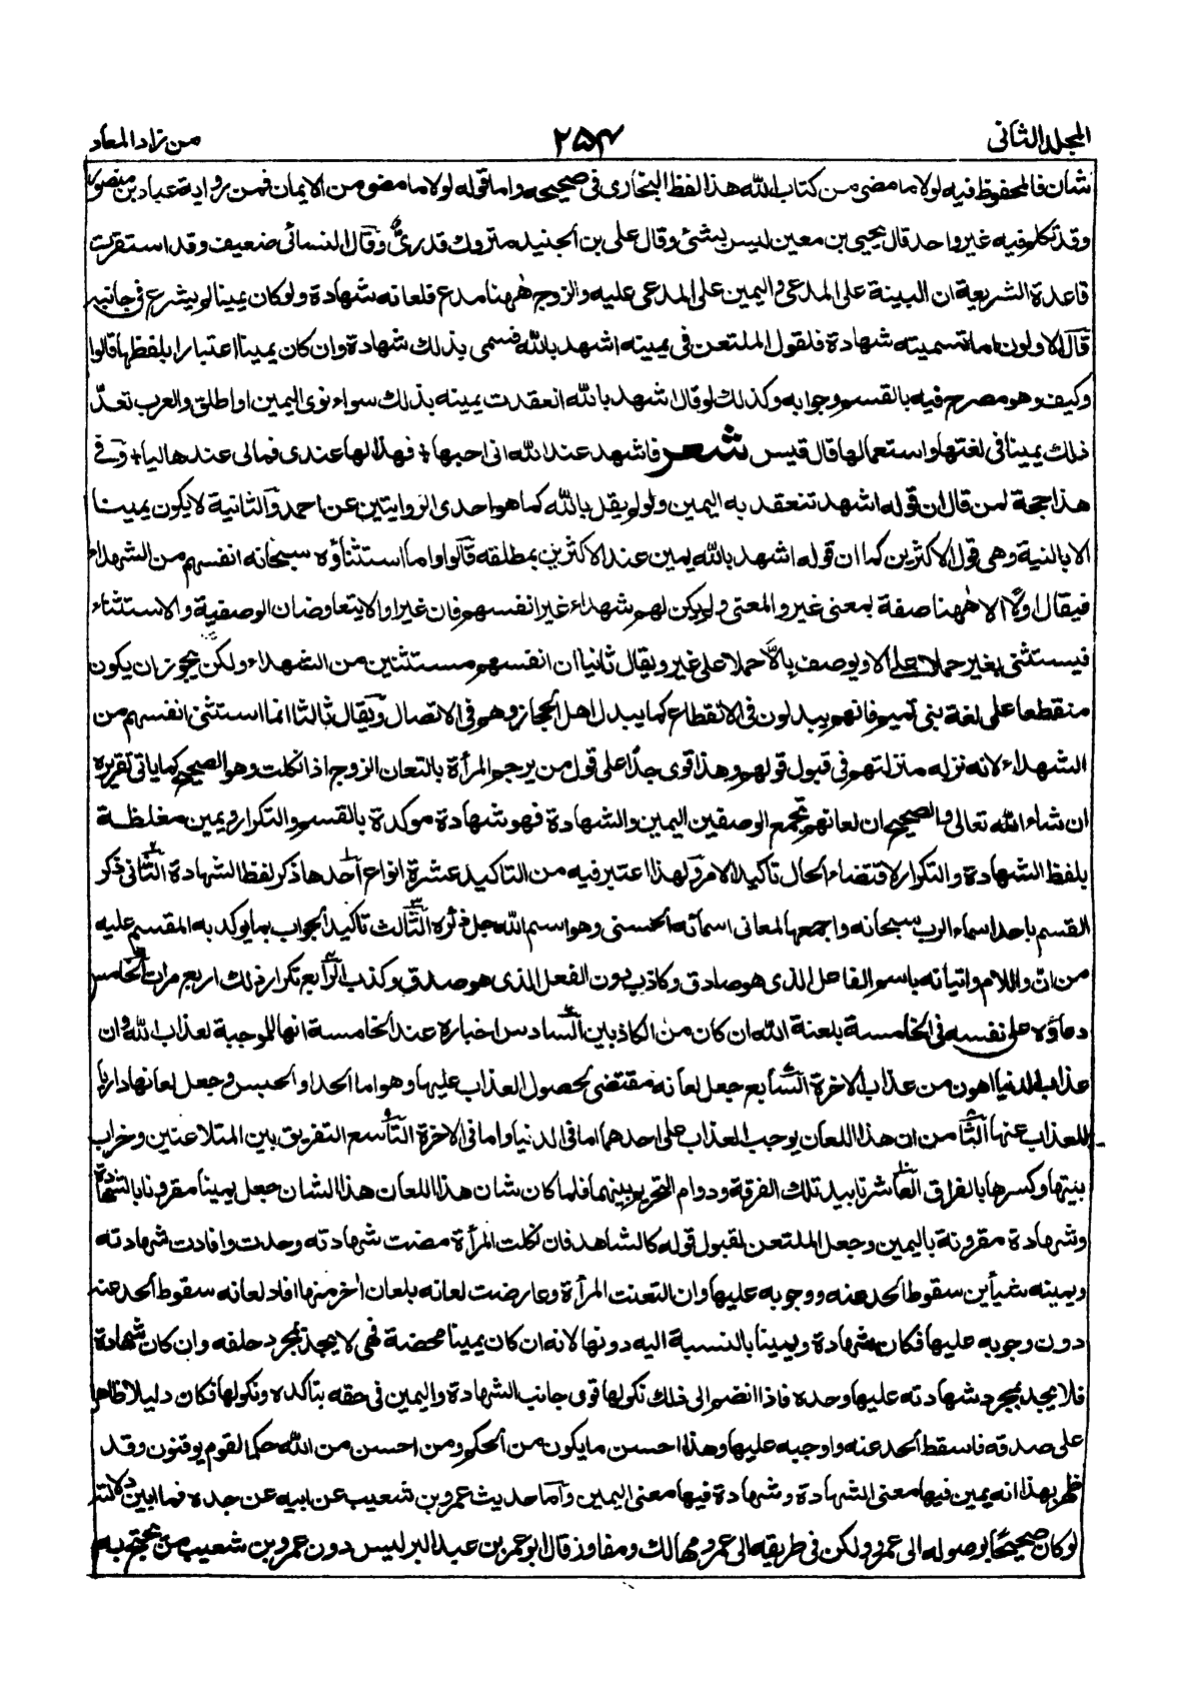 المجلد الثانى
٢٥٤
من زاد المعاد
شان فالمحفوظ فيه لولا ما مضى من كتاب الله هذا لفظ البخارى فى صحيحه واما قوله لولا ما مضى من الايمان فمن رواية عباد بن منصور
وقد تكلم فيه غير واحد قال يحيى بن معين ليس بشئ وقال على بن الجنيد متروك قدرىٌّ وقال النسائى ضعيف وقد استقرت
قاعدة الشريعة ان البينة على المدعى واليمين على المدعى عليه والزوج ههنا مدع فلعانه شهادة ولو كان يمينا لم يشرع فى جانبه
قال الاولون اما تسميته شهادة فلقول الملتعن فى يمينه اشهد بالله فسمى بذلك شهادة وان كان يمينا اعتبارا بلفظها قالوا
وكيف وهو مصرح فيه بالقسم وجوابه وكذلك لو قال اشهد بالله انعقدت يمينه بذلك سواء نوى اليمين او اطلق والعرب تعدّ
ذلك يمينا فى لغتها واستعمالها قال قيس شعر فاشهد عند الله انى احبها + فهذا لها عندى فما لى عندها ليا + وفى
هذا حجة لمن قال ان قوله اشهد تنعقد به اليمين ولو لم يقل بالله كما هو احدى الروايتين عن احمد والثانية لا يكون يمينا
الا بالنية وهى قول الاكثرين كما ان قوله اشهد بالله يمين عند الاكثرين بمطلقه قالوا واما استثناؤه سبحانه انفسهم من الشهداء
فيقال اولًا الا ههنا صفة بمعنى غير والمعنى ولم يكن لهم شهداء غير انفسهم فان غيرا والا يتعاوضان الوصفية والاستثناء
فيستثنى بغير حملا على الا ويوصف بالا حملا على غير ويقال ثانيا ان انفسهم مستثنين من الشهداء ولكن يجوز ان يكون
منقطعا على لغة بنى تميم فانهم يبدلون فى الانقطاع كما يبدل اهل الحجاز وهم فى الاتصال ويقال ثالثا انما استثنى انفسهم من
الشهداء لانه نزله منزلتهم فى قبول قولهم وهذا قوى جدًا على قول من يرجم المرأة بالتعان الزوج اذا نكلت وهو الصحيح كما ياتى تقريره
ان شاء الله تعالى والصحيح ان لعانهم يجمع الوصفين اليمين والشهادة فهو شهادة موكدة بالقسم والتكرار ويمين مغلظة
بلفظ الشهادة والتكرار لاقتضاء الحال تاكيد الامر ولهذا اعتبر فيه من التاكيد عشرة انواع احدها ذكر لفظ الشهادة الثانى ذكر
القسم باحد اسماء الرب سبحانه واجمعها لمعانى اسمائه الحسنى وهو اسم الله جل ذكره الثالث تاكيد الجواب بما يوكد به المقسم عليه
من ان واللام واتيانه باسم الفاعل الذى هو صادق وكاذب دون الفعل الذى هو صدق وكذب الرابع تكرار ذلك اربع مرات الخامس
دعاؤه على نفسه فى الخامسة بلعنة الله ان كان من الكاذبين السادس اخباره عند الخامسة انها الموجبة لعذاب الله وان
عذاب الدنيا اهون من عذاب الاخرة السابع جعل لعانه مقتضى لحصول العذاب عليها وهو اما الحد او الحبس وجعل لعانها داريا
للعذاب عنها الثامن ان هذا اللعان يوجب العذاب على احدهما اما فى الدنيا واما فى الاخرة التاسع التفريق بين المتلاعنين وخراب
بيتها وكسرها بالفراق العاشر تابيد تلك الفرقة ودوام التحريم بينهما فلما كان شان هذا اللعان هذا الشان جعل يمينا مقرونا بالشهادة
وشهادة مقرونة باليمين وجعل الملتعن لقبول قوله كالشاهد فان نكلت المرأة مضت شهادته وحدت وافادت شهادته
ويمينه شيأين سقوط الحد عنه ووجوبه عليها وان التعنت المرأة وعارضت لعانه بلعان اخر منها افاد لعانه سقوط الحد عنه
دون وجوبه عليها فكان شهادة ويمينا بالنسبة اليه دونها لانه ان كان يمينا محضة فهى لا يحد بمجرد حلفه وان كان شهادة
فلا يحد بمجرد شهادته عليها وحده فاذا انضم الى ذلك نكولها قوى جانب الشهادة واليمين فى حقه بتاكده ونكولها فكان دليلا ظاهرا
على صدقه فاسقط الحد عنه واوجبه عليها وهذا احسن ما يكون من الحكم ومن احسن من الله حكما لقوم يوقنون وقد
ظهر بهذا انه يمين فيها معنى الشهادة وشهادة فيها معنى اليمين واما حديث عمرو بن شعيب عن ابيه عن جده فما ابين دلالته
لو كان صحيحًا بوصوله الى عمرو ولكن فى طريقه الى عمرو مهالك ومفاوز قال ابو عمر بن عبد البر ليس دون عمرو بن شعيب من يحتج به